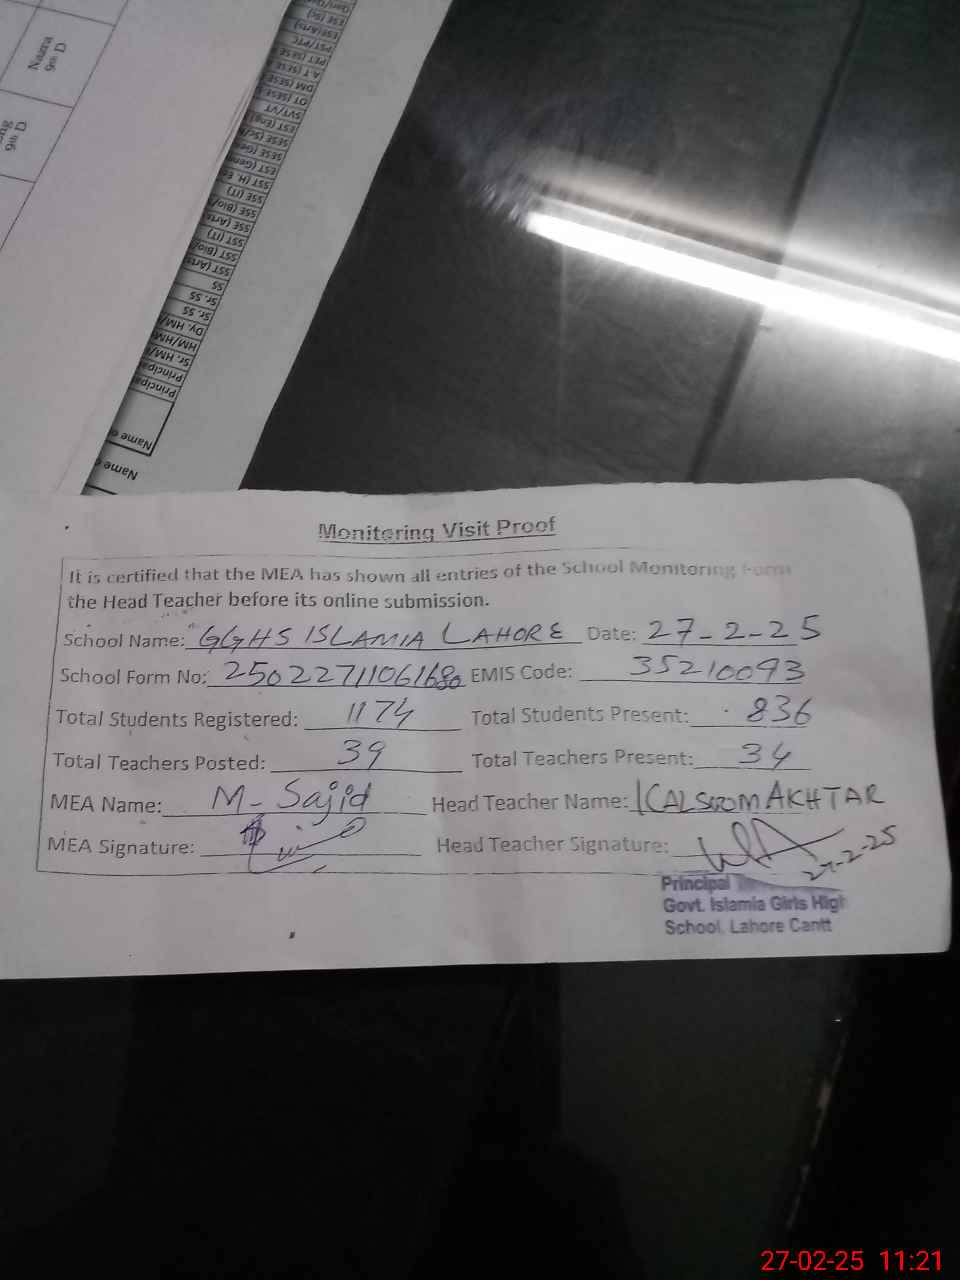 Nazra
9th D
9th D
ESE (Sc)
ESE (Arts)
PST/PTC
PET (SESE
A T (SESE
DM (SESE)
OT (SESE)
SVT/VT
EST (Eng)
SESE (Sc/
SESE (Gen)
EST (Genr
SST (H. Ec
SSE (IT)
SSE (Bio/
SSE (Arts
SST (IT)
SST (Bio/
SST (Arts
SS
Sr. SS
Sr. SS
Dy. HM/
HM/HM
Sr. HM/
Principal
Principal
Name o
Name o
Monitoring Visit Proof
It is certified that the MEA has shown all entries of the School Monitoring Form
the Head Teacher before its online submission.
School Name: GGHS ISLAMIA LAHORE Date: 27-2-25
School Form No: 25022711061680 EMIS Code: 35210093
Total Students Registered: 1174 Total Students Present: 836
Total Teachers Posted: 39 Total Teachers Present: 34
MEA Name: M- Sajid Head Teacher Name: KALSOOM AKHTAR
MEA Signature: Head Teacher Signature:
27-2-25
Principal
Govt. Islamia Girls High
School, Lahore Cantt
27-02-25 11:21